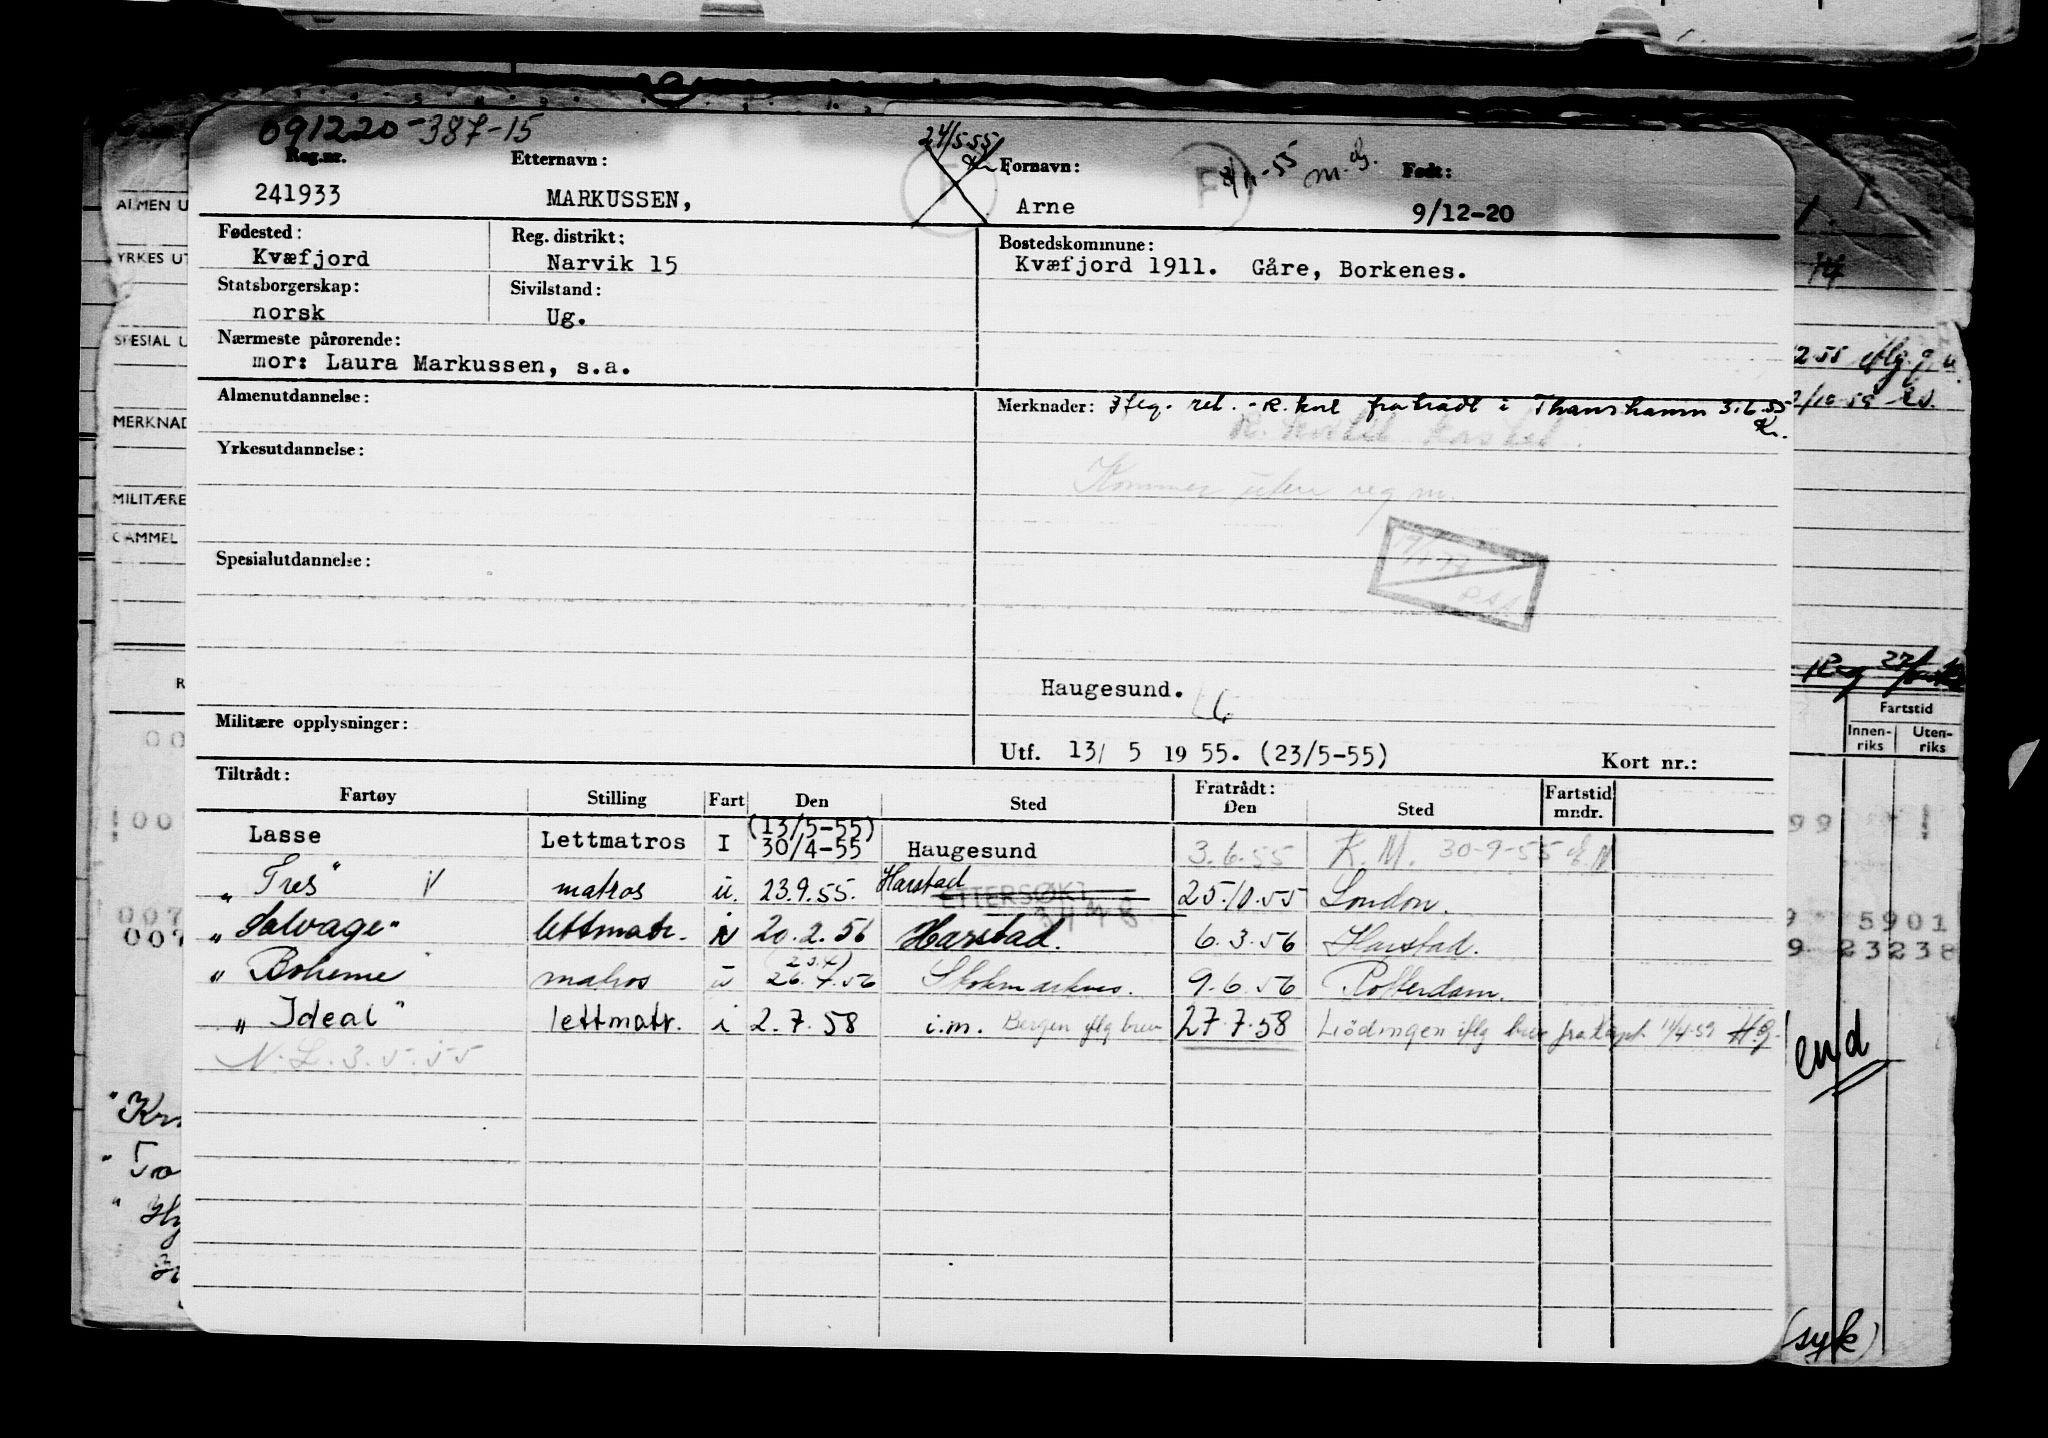 091220-387-15
24/5 55
8/11-55
Reg.nr. Etternavn: Fornavn: Født:
241933 MARKUSSEN, Arne 9/12-20
Fødested: Reg. distrikt: Bostedskommune:
Kvæfjord Narvik 15 Kvæfjord 1911. Gåre, Borkenes.
Statsborgerskap: Sivilstand:
norsk Ug.
Nærmeste pårørende:
mor: Laura Markussen, s.a.
Almenutdannelse: Merknader: Iflg. ret. - R. kort fratrådt i Thamshamn 3.6.55
Kr.
Yrkesutdannelse:
Kommer uten reg nr.
Spesialutdannelse:
Haugesund.
Militære opplysninger: Utf. 13/ 5 19 55. (23/5-55) Kort nr.:
Tiltrådt: Fratrådt: Fartstid
Fartøy Stilling Fart Den Sted Den Sted mndr.
(13/5-55)
Lasse Lettmatros I 30/4-55 Haugesund 3.6.55 K.M. 30-9-55
„Tres" matros u. 23.9.55. Harstad 25.10.55 London.
ETTERSØKT
„Salvage" lettmatr. i 20.2.56 Harstad. 6.3.56 Harstad.
„Boheme" matros u 26.4.56 Stokmarknes. 9.6.56 Rotterdam.
„Ideal" lettmatr. i 2.7.58 i.m. Bergen iflg brev 27.7.58 Lødingen iflg brev fra kapt. 14/4-59 H.G.
N.L. 3.5.55
ALMEN U
YRKES UT
SPESIAL U
MERKNAD
MILITÆRE
GAMMEL
R
Fartstid
Innen-riks Uten-riks
007
007
99
5901
23238
end
(syk)